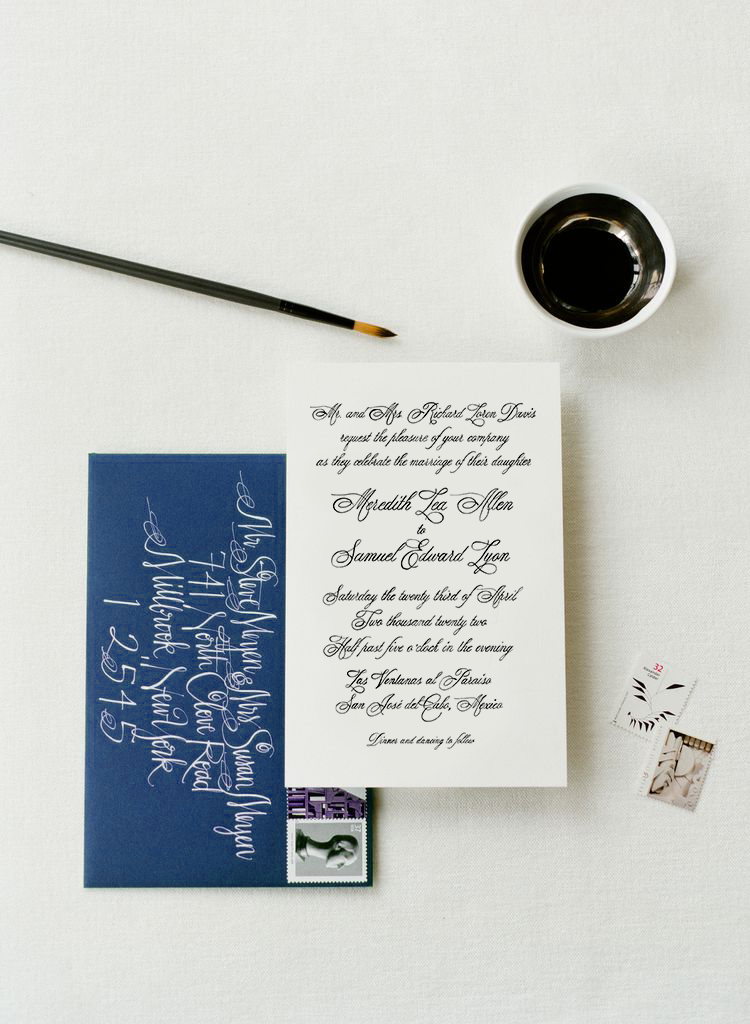 Mr. and Mrs. Richard Loren Davis
request the pleasure of your company
as they celebrate the marriage of their daughter
Meredith Lea Allen
to
Samuel Edward Lyon
Saturday the twenty third of April
Two thousand twenty two
Half past five o'clock in the evening
Las Ventanas al Paraiso
San José del Cabo, Mexico
Dinner and dancing to follow
Mr. Steve Meyer & Mrs Susan Meyer
741 North Clove Road
Millbrook, New York
12545
32
Alexander
Calder